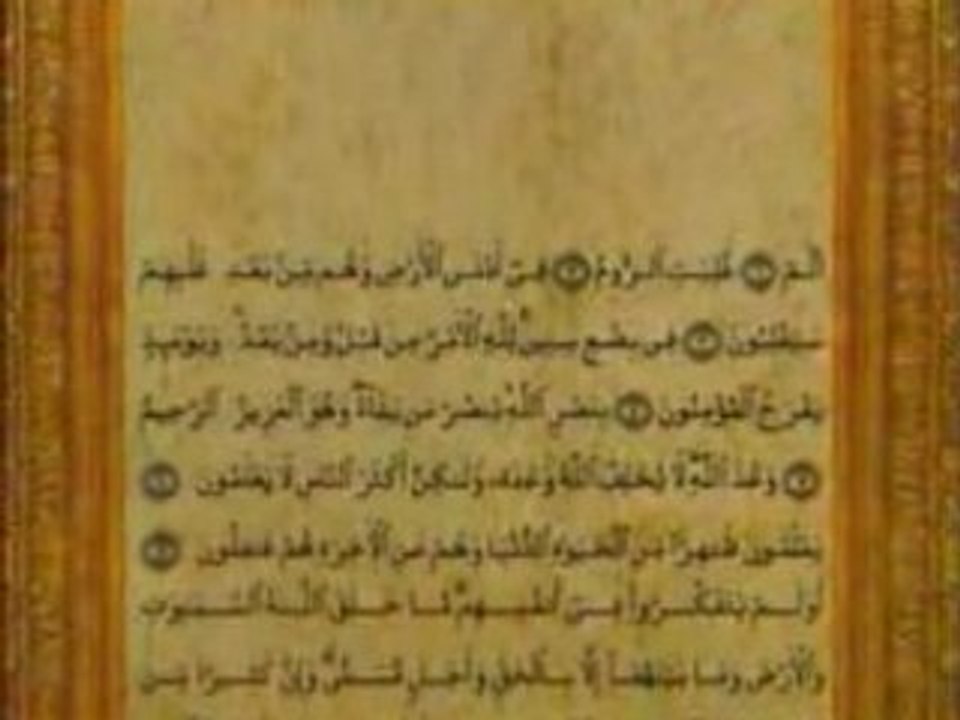 الٓمٓ ۝ غُلِبَتِ ٱلرُّومُ ۝ فِىٓ أَدْنَى ٱلْأَرْضِ وَهُم مِّنۢ بَعْدِ غَلَبِهِمْ
سَيَغْلِبُونَ ۝ فِى بِضْعِ سِنِينَ لِلَّهِ ٱلْأَمْرُ مِن قَبْلُ وَمِنۢ بَعْدُ وَيَوْمَئِذٍ
يَفْرَحُ ٱلْمُؤْمِنُونَ ۝ بِنَصْرِ ٱللَّهِ يَنصُرُ مَن يَشَآءُ وَهُوَ ٱلْعَزِيزُ ٱلرَّحِيمُ
۝ وَعْدَ ٱللَّهِ لَا يُخْلِفُ ٱللَّهُ وَعْدَهُۥ وَلَٰكِنَّ أَكْثَرَ ٱلنَّاسِ لَا يَعْلَمُونَ ۝
يَعْلَمُونَ ظَٰهِرًا مِّنَ ٱلْحَيَوٰةِ ٱلدُّنْيَا وَهُمْ عَنِ ٱلْأَخِرَةِ هُمْ غَٰفِلُونَ ۝
أَوَلَمْ يَتَفَكَّرُوا۟ فِىٓ أَنفُسِهِم مَّا خَلَقَ ٱللَّهُ ٱلسَّمَٰوَٰتِ
وَٱلْأَرْضَ وَمَا بَيْنَهُمَآ إِلَّا بِٱلْحَقِّ وَأَجَلٍ مُّسَمًّى وَإِنَّ كَثِيرًا مِّنَ